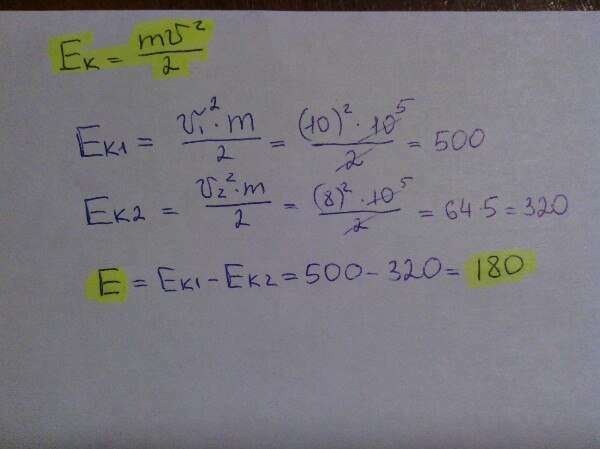 Eк = mv²/2
Eк1 = v₁²·m/2 = (10)²·10⁵/2 = 500
Eк2 = v₂²·m/2 = (8)²·10⁵/2 = 64·5 = 320
E = Eк1 - Eк2 = 500 - 320 = 180